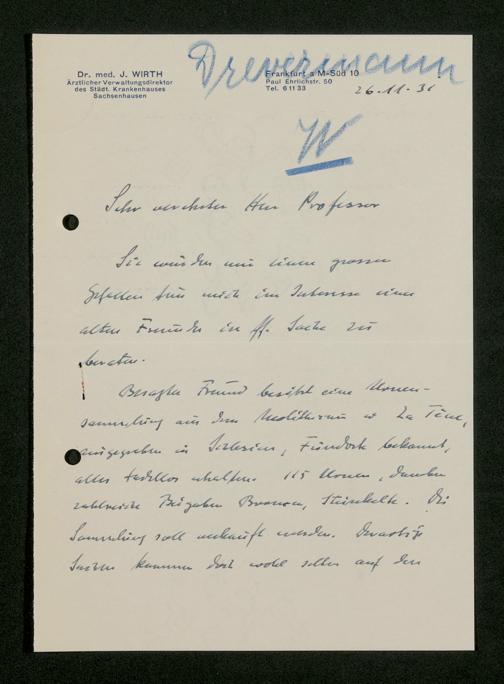 Dr. med. J. WIRTH
Ärztlicher Verwaltungsdirektor
des Städt. Krankenhauses
Sachsenhausen
Drevermann
Frankfurt a M-Süd 10
Paul Ehrlichstr. 50
Tel. 61133
26.11.31
W
Sehr verehrter Herr Professor
Sie würden mir einen grossen
Gefallen tun mich im Interesse eines
alten Freundes in ff. Sache zu
beraten.
Besagter Freund besitzt eine Urnen-
sammlung aus dem Neolithicum La Tène,
ausgegraben in Schlesien, Fundorte bekannt,
alles tadellos erhalten. 115 Urnen, daneben
zahlreiche Beigaben Bronzen, Steinbeile. Die
Sammlung soll verkauft werden. Derartige
Sachen kommen doch wohl selten auf den